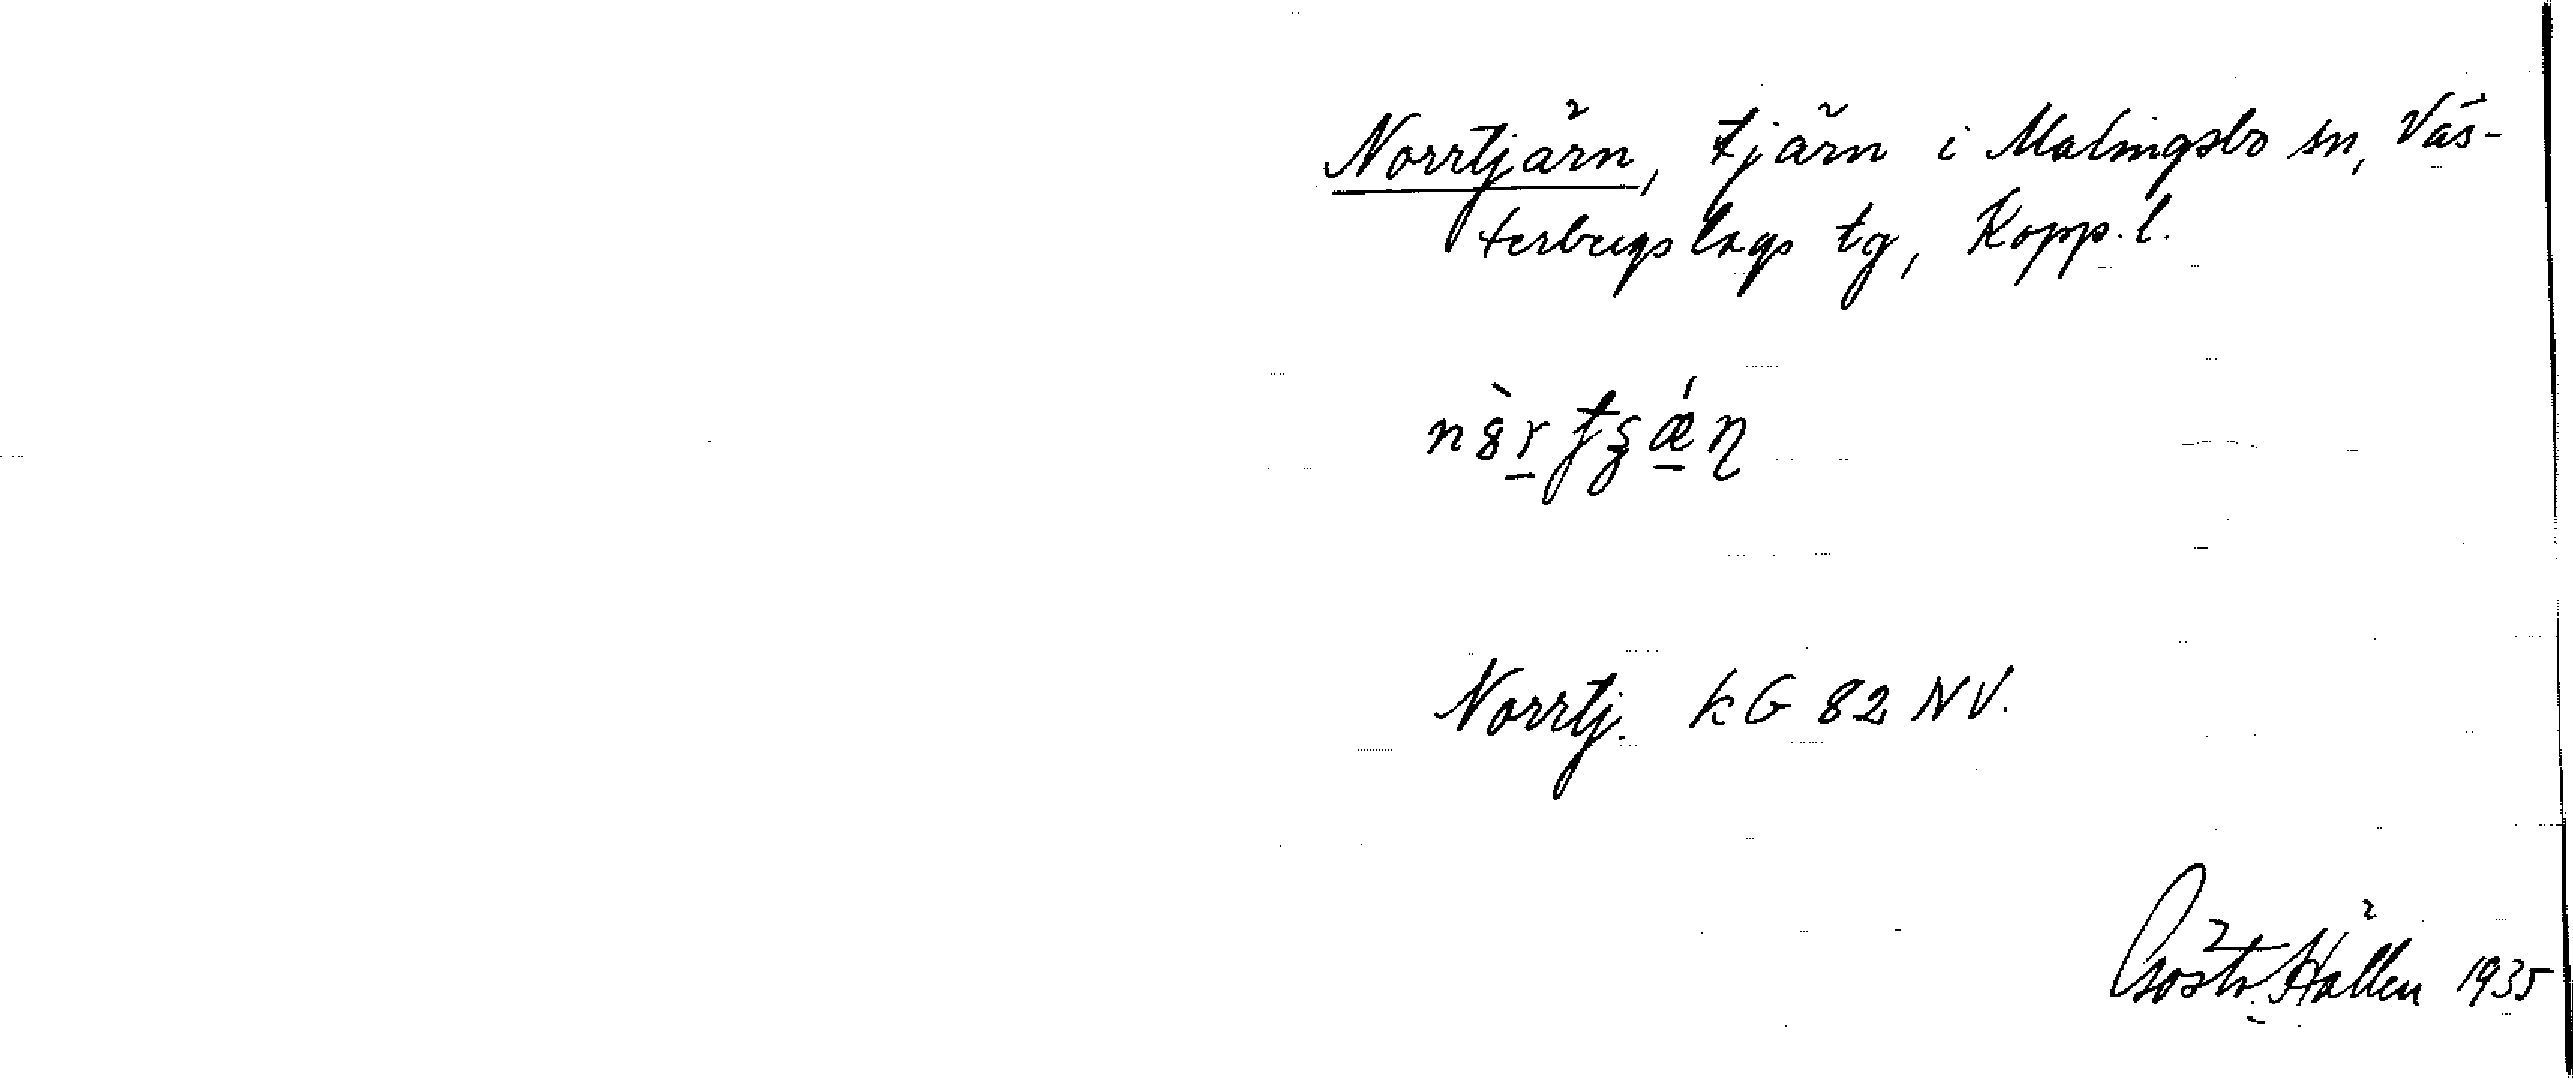 Norrtjärn, tjärn i Malingsbo sn, Väs-
terbergslags tg, Kopp. l.
Norrtj. kG 82 NV.
Gösta Hållén 1935